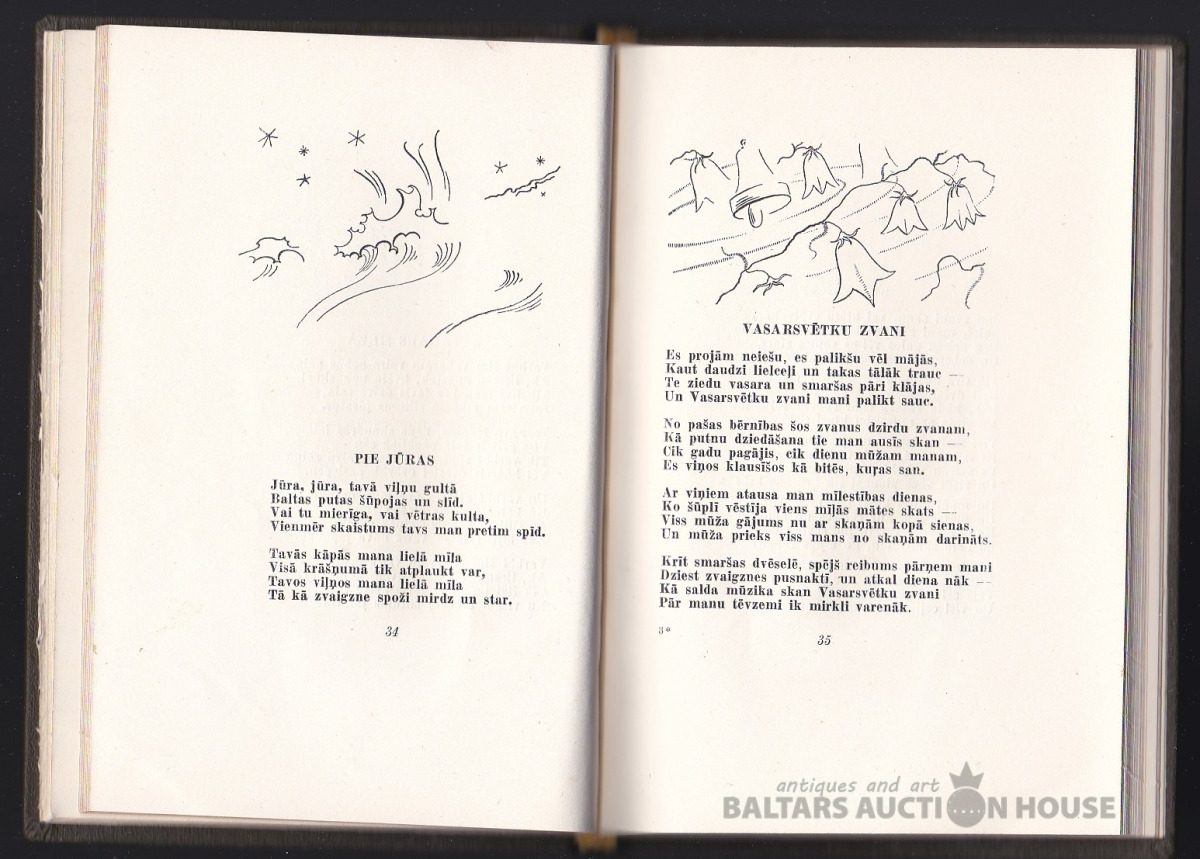 PIE JŪRAS
Jūra, jūra, tavā viļņu gultā
Baltas putas šūpojas un slīd.
Vai tu mierīga, vai vētras kulta,
Vienmēr skaistums tavs man pretim spīd.
Tavās kāpās mana lielā mīla
Visā krāšņumā tik atplaukt var,
Tavos viļņos mana lielā mīla
Tā kā zvaigzne spoži mirdz un star.
34
VASARSVĒTKU ZVANI
Es projām neiešu, es palikšu vēl mājās,
Kaut daudzi lielceļi un takas tālāk trauc —
Te ziedu vasara un smaršas pāri klājas,
Un Vasarsvētku zvani mani palikt sauc.
No pašas bērnības šos zvanus dzirdu zvanam,
Kā putnu dziedāšana tie man ausīs skan —
Cik gadu pagājis, cik dienu mūžam manam,
Es viņos klausīšos kā bitēs, kuŗas san.
Ar viņiem atausa man mīlestības dienas,
Ko šūplī vēstīja viens mīļās mātes skats —
Viss mūža gājums nu ar skaņām kopā sienas,
Un mūža prieks viss mans no skaņām darināts.
Krīt smaršas dvēselē, spējš reibums pārņem mani
Dziest zvaigznes pusnaktī, un atkal diena nāk —
Kā salda mūzika skan Vasarsvētku zvani
Pār manu tēvzemi ik mirkli varenāk.
3*
35
antiques and art
BALTARS AUCTION HOUSE